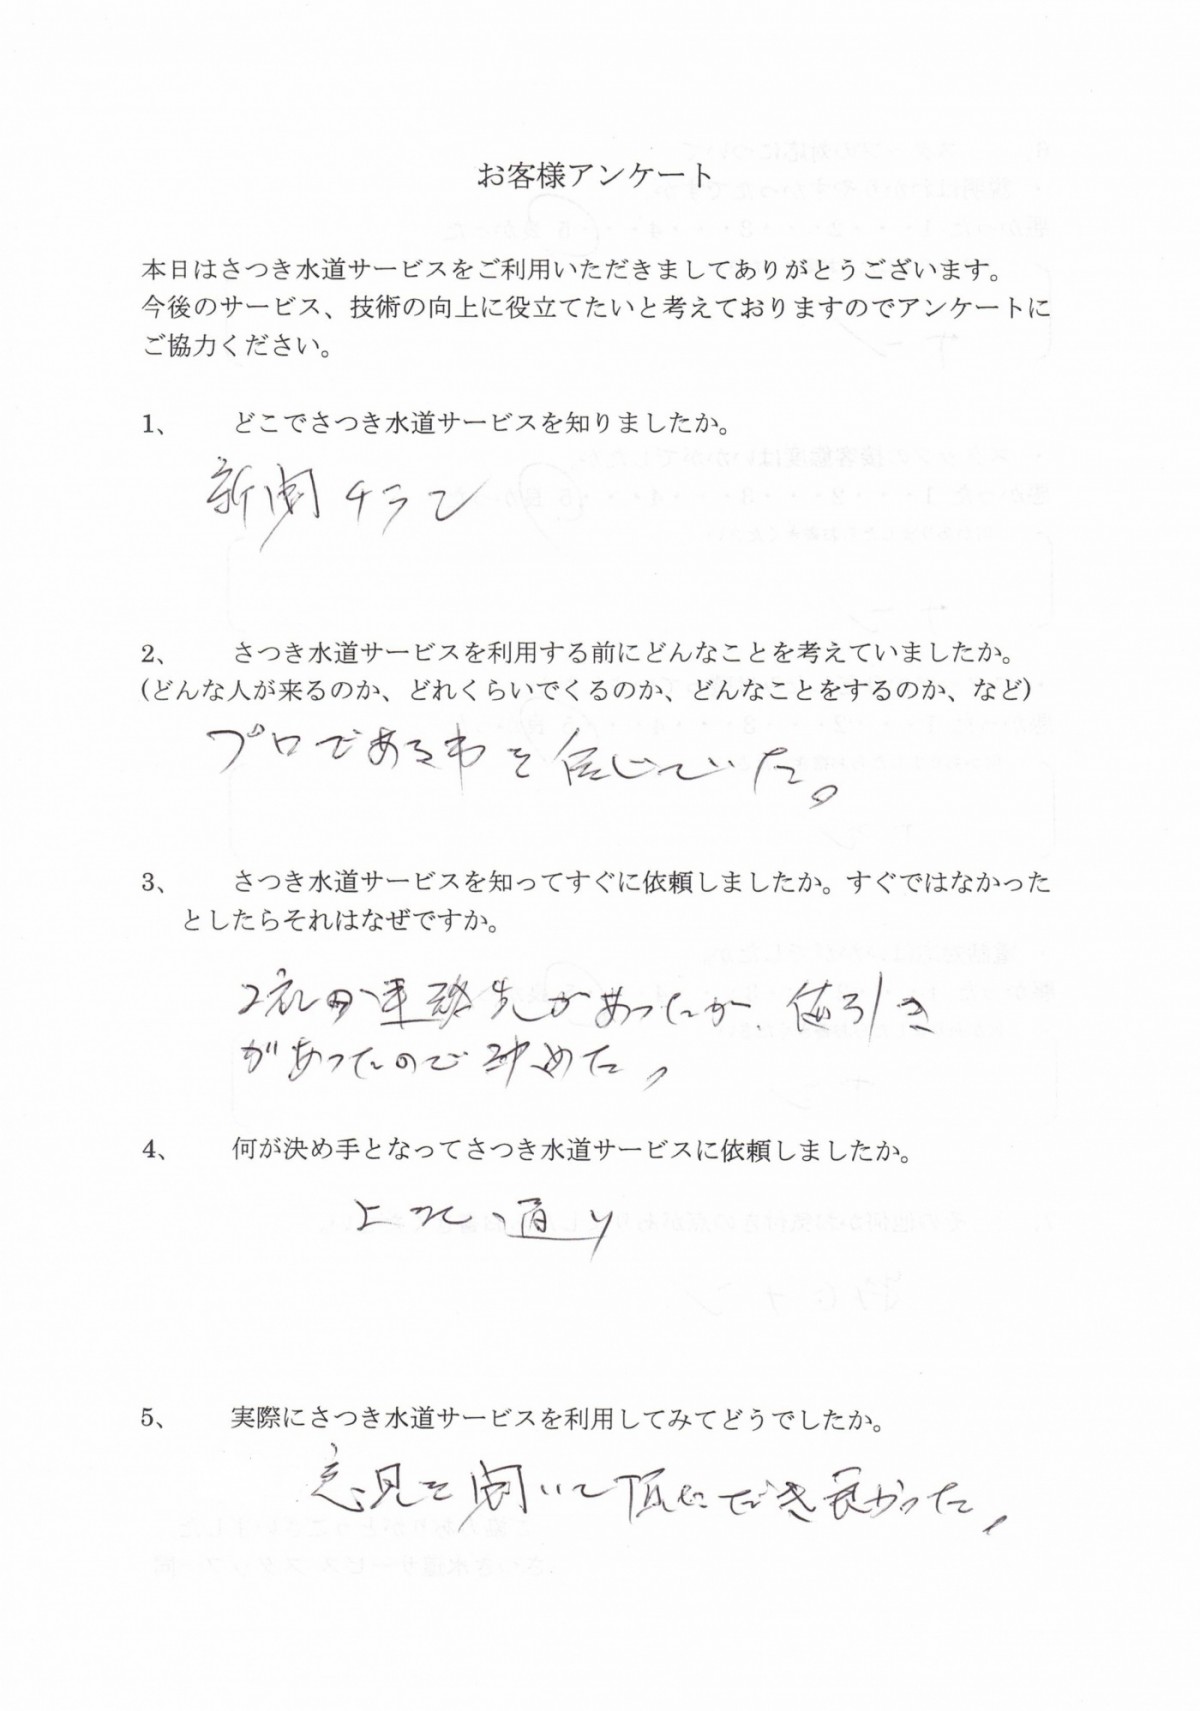 お客様アンケート
本日はさつき水道サービスをご利用いただきましてありがとうございます。
今後のサービス、技術の向上に役立てたいと考えておりますのでアンケートに
ご協力ください。
1、 どこでさつき水道サービスを知りましたか。
新聞チラシ
2、 さつき水道サービスを利用する前にどんなことを考えていましたか。
(どんな人が来るのか、どれくらいでくるのか、どんなことをするのか、など)
プロである事を信じていた。
3、 さつき水道サービスを知ってすぐに依頼しましたか。すぐではなかった
としたらそれはなぜですか。
2社の連絡先があったが、値引き
があったので決めた。
4、 何が決め手となってさつき水道サービスに依頼しましたか。
上記通り
5、 実際にさつき水道サービスを利用してみてどうでしたか。
意見を聞いて頂だき良かった。